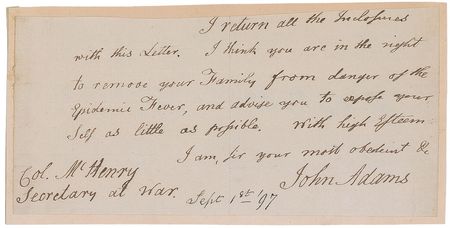 I return all the Inclosures
with this Letter. I think you are in the right
to remove your Family from danger of the
Epidemic Fever, and advise you to expose your
self as little as possible. With high Esteem
I am, sir your most obedient &c
John Adams
Col. McHenry
Secretary at War. Sept 1st '97